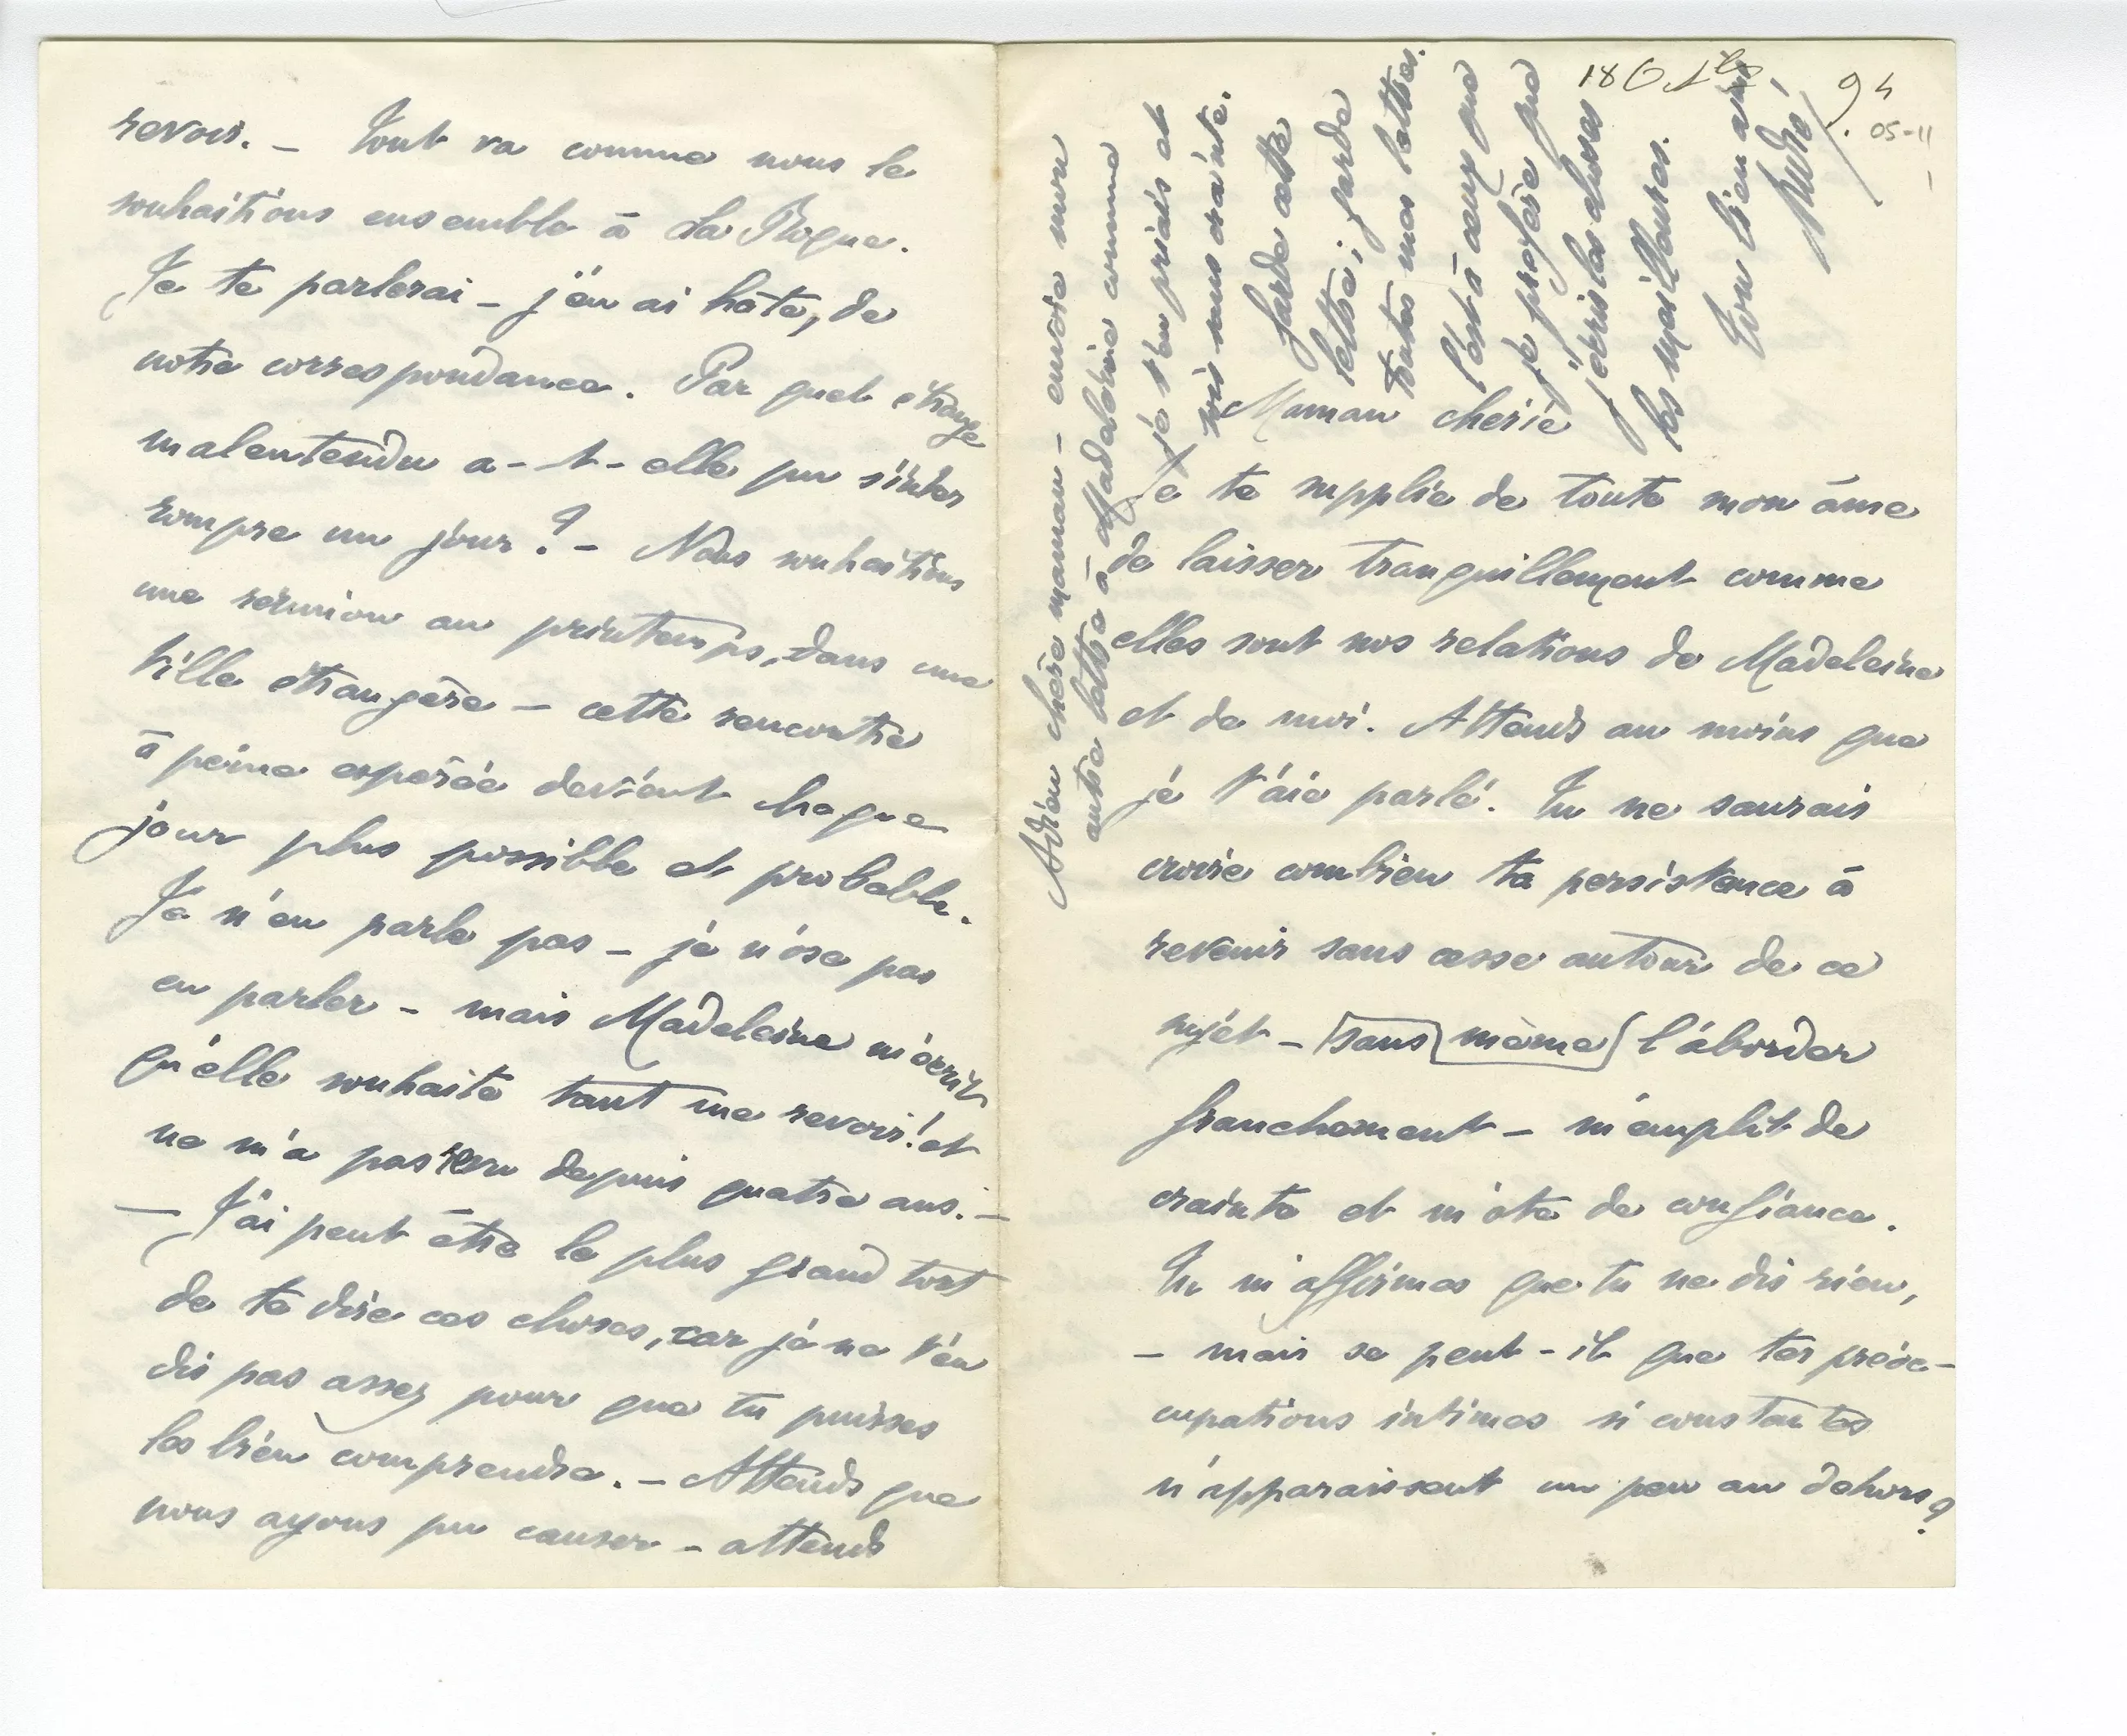 18 Oct 94
05-11
Maman chérie
Je te supplie de toute mon âme
de laisser tranquillement comme
elles sont nos relations de Madeleine
et de moi. Attends au moins que
je t'aie parlé. Tu ne saurais
croire combien ta persistance à
revenir sans cesse autour de ce
sujet – sans même l'aborder
franchement – m'emplit de
crainte et m'ôte de confiance.
Tu m'affirmes que tu ne dis rien,
– mais se peut-il que tes préoc-
cupations intimes si constantes
n'apparaissent un peu au dehors ?
revoir. – Tout va comme nous le
souhaitions ensemble à La Roque.
Je te parlerai – j'en ai hâte, de
notre correspondance. Par quel étrange
malentendu a-t-elle pu s'inter
rompre un jour ? – Nous souhaitions
une réunion au printemps, dans une
ville étrangère – cette rencontre
à peine espérée devient chaque
jour plus possible et probable.
Je n'en parle pas – je n'ose pas
en parler – mais Madeleine m'écrit
qu'elle souhaite tant me revoir ! et
ne m'a pas revu depuis quatre ans. –
– J'ai peut être le plus grand tort
de te dire ces choses, car je ne t'en
dis pas assez pour que tu puisses
les bien comprendre. – Attends que
nous ayons pu causer – attends
Adieu chère maman – envoie mon
autre lettre à Madeleine comme
je t'en priais et
sois sans crainte.
Garde cette
lettre ; garde
toutes mes lettres.
C'est à ceux que
je préfère que
j'écris les choses
les meilleures.
Ton bien aimé
André